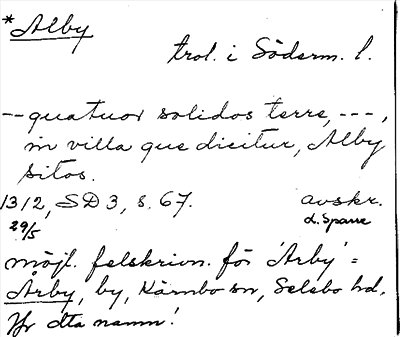 *Alby
trol. i Söderm. l.
-- quatuor solidos terre, ---,
in villa que dicitur, Alby
sitos.
1312, SD 3, s. 67. avskr.
29/5 d. Sparre
möjl. felskrivn. för 'Arby' =
Årby, by, Kärnbo sn, Selebo hd.
Jfr dta namn!